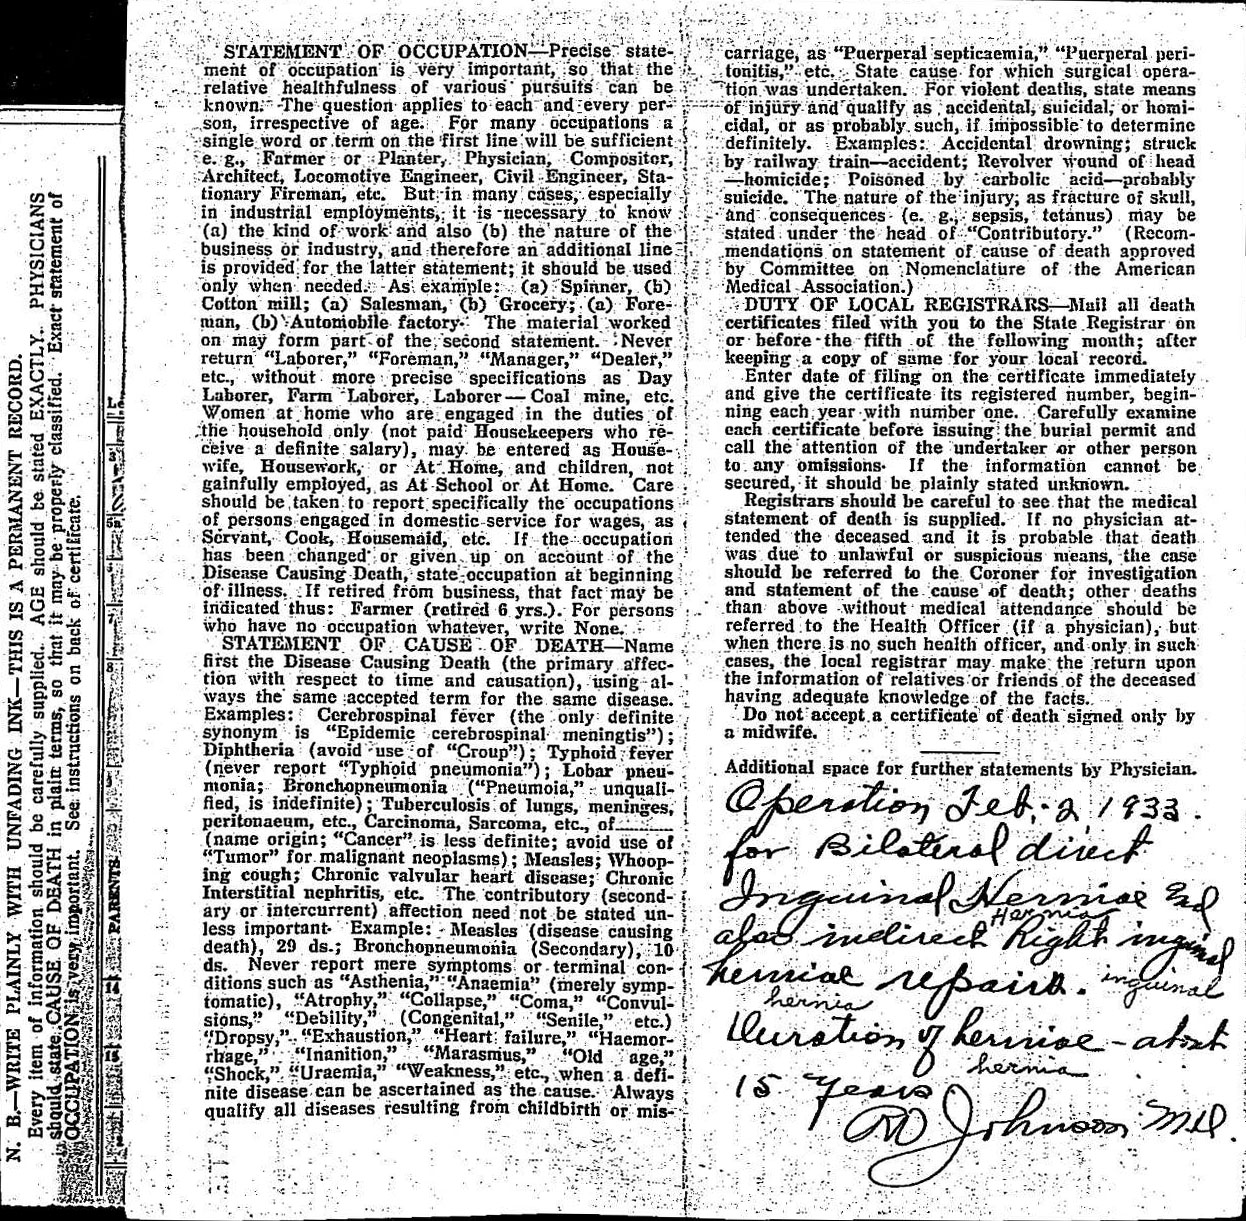 N. B.—WRITE PLAINLY WITH UNFADING INK—THIS IS A PERMANENT RECORD.
Every item of information should be carefully supplied. AGE should be stated EXACTLY. PHYSICIANS
should state CAUSE OF DEATH in plain terms, so that it may be properly classified. Exact statement of
OCCUPATION is very important. See instructions on back of certificate.
PARENTS
STATEMENT OF OCCUPATION—Precise state-
ment of occupation is very important, so that the
relative healthfulness of various pursuits can be
known. The question applies to each and every per-
son, irrespective of age. For many occupations a
single word or term on the first line will be sufficient
e. g., Farmer or Planter, Physician, Compositor,
Architect, Locomotive Engineer, Civil Engineer, Sta-
tionary Fireman, etc. But in many cases, especially
in industrial employments, it is necessary to know
(a) the kind of work and also (b) the nature of the
business or industry, and therefore an additional line
is provided for the latter statement; it should be used
only when needed. As example: (a) Spinner, (b)
Cotton mill; (a) Salesman, (b) Grocery; (a) Fore-
man, (b) Automobile factory. The material worked
on may form part of the second statement. Never
return "Laborer," "Foreman," "Manager," "Dealer,"
etc., without more precise specifications as Day
Laborer, Farm Laborer, Laborer—Coal mine, etc.
Women at home who are engaged in the duties of
the household only (not paid Housekeepers who re-
ceive a definite salary), may be entered as House-
wife, Housework, or At Home, and children, not
gainfully employed, as At School or At Home. Care
should be taken to report specifically the occupations
of persons engaged in domestic service for wages, as
Servant, Cook, Housemaid, etc. If the occupation
has been changed or given up on account of the
Disease Causing Death, state occupation at beginning
of illness. If retired from business, that fact may be
indicated thus: Farmer (retired 6 yrs.). For persons
who have no occupation whatever, write None.
STATEMENT OF CAUSE OF DEATH—Name
first the Disease Causing Death (the primary affec-
tion with respect to time and causation), using al-
ways the same accepted term for the same disease.
Examples: Cerebrospinal fever (the only definite
synonym is "Epidemic cerebrospinal meningtis");
Diphtheria (avoid use of "Croup"); Typhoid fever
(never report "Typhoid pneumonia"); Lobar pneu-
monia; Bronchopneumonia ("Pneumoia," unquali-
fied, is indefinite); Tuberculosis of lungs, meninges,
peritonaeum, etc., Carcinoma, Sarcoma, etc., of........
(name origin; "Cancer" is less definite; avoid use of
"Tumor" for malignant neoplasms); Measles; Whoop-
ing cough; Chronic valvular heart disease; Chronic
Interstitial nephritis, etc. The contributory (second-
ary or intercurrent) affection need not be stated un-
less important. Example: Measles (disease causing
death), 29 ds.; Bronchopneumonia (Secondary), 10
ds. Never report mere symptoms or terminal con-
ditions such as "Asthenia," "Anaemia" (merely symp-
tomatic), "Atrophy," "Collapse," "Coma," "Convul-
sions," "Debility," (Congenital," "Senile," etc.)
"Dropsy," "Exhaustion," "Heart failure," "Haemor-
rhage," "Inanition," "Marasmus," "Old age,"
"Shock," "Uraemia," "Weakness," etc., when a defi-
nite disease can be ascertained as the cause. Always
qualify all diseases resulting from childbirth or mis-
carriage, as "Puerperal septicaemia," "Puerperal peri-
tonitis," etc. State cause for which surgical opera-
tion was undertaken. For violent deaths, state means
of injury and qualify as accidental, suicidal, or homi-
cidal, or as probably such, if impossible to determine
definitely. Examples: Accidental drowning; struck
by railway train—accident; Revolver wound of head
—homicide; Poisoned by carbolic acid—probably
suicide. The nature of the injury, as fracture of skull,
and consequences (e. g., sepsis, tetanus) may be
stated under the head of "Contributory." (Recom-
mendations on statement of cause of death approved
by Committee on Nomenclature of the American
Medical Association.)
DUTY OF LOCAL REGISTRARS—Mail all death
certificates filed with you to the State Registrar on
or before the fifth of the following month; after
keeping a copy of same for your local record.
Enter date of filing on the certificate immediately
and give the certificate its registered number, begin-
ning each year with number one. Carefully examine
each certificate before issuing the burial permit and
call the attention of the undertaker or other person
to any omissions. If the information cannot be
secured, it should be plainly stated unknown.
Registrars should be careful to see that the medical
statement of death is supplied. If no physician at-
tended the deceased and it is probable that death
was due to unlawful or suspicious means, the case
should be referred to the Coroner for investigation
and statement of the cause of death; other deaths
than above without medical attendance should be
referred to the Health Officer (if a physician), but
when there is no such health officer, and only in such
cases, the local registrar may make the return upon
the information of relatives or friends of the deceased
having adequate knowledge of the facts.
Do not accept a certificate of death signed only by
a midwife.
Additional space for further statements by Physician.
Operation Feb. 2, 1933.
for Bilateral direct
Inguinal Herniae and
Hernia
also indirect Right inginal
herniae repaird. inguinal
hernia
Duration of herniae - about
hernia
15 years
Johnson M.D.